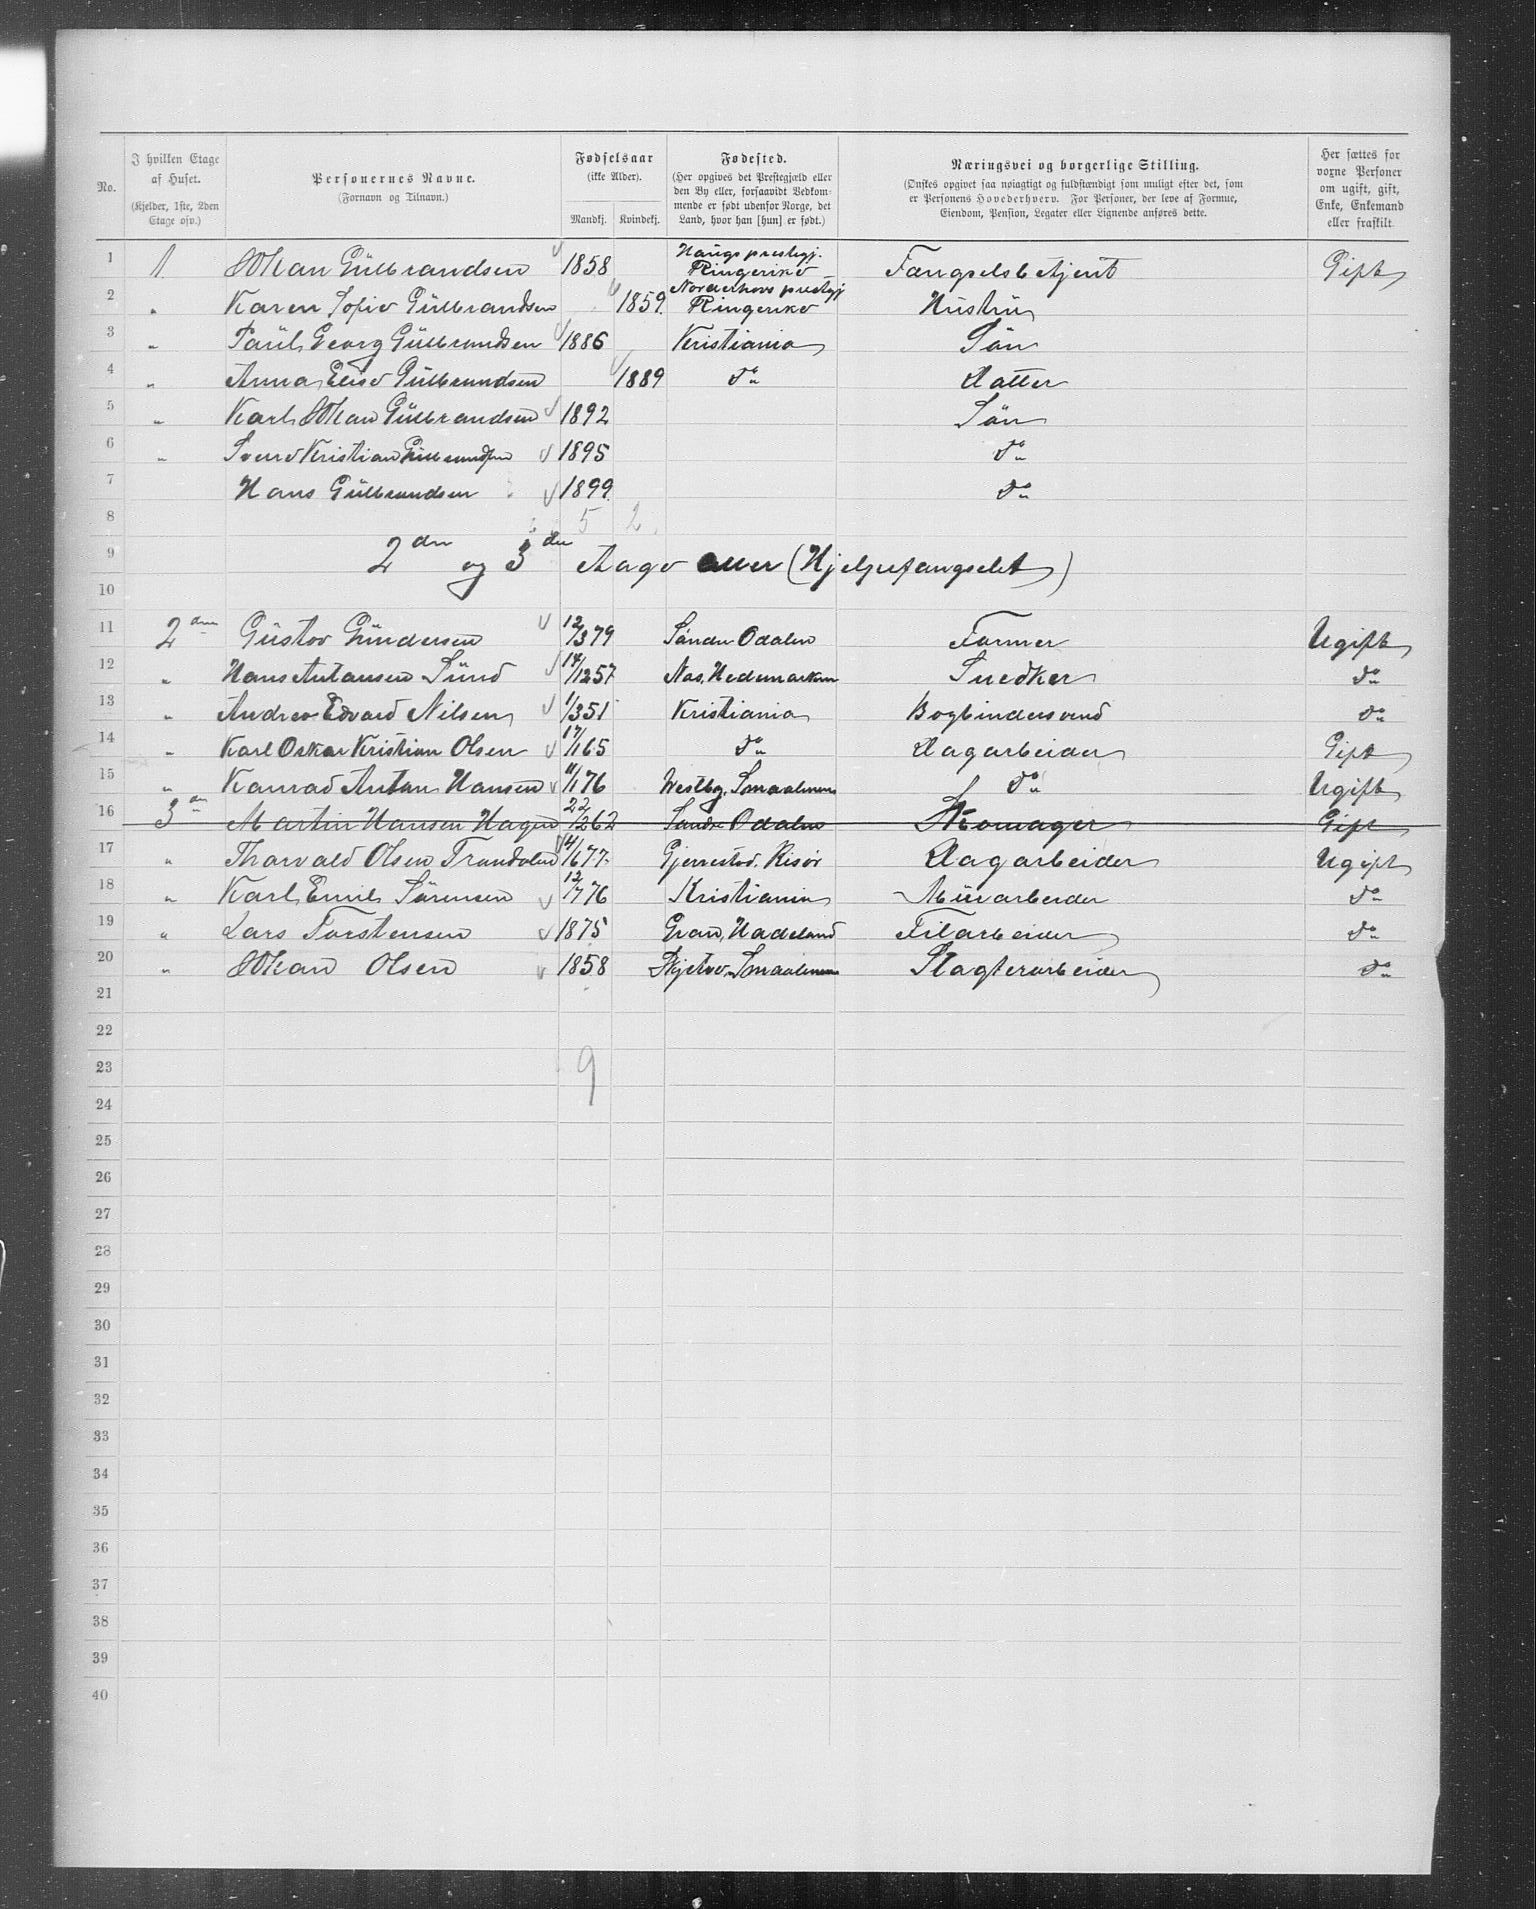 No.
I hvilken Etage af Huset.
(Kjelder, 1ste, 2den Etage osv.)
Personernes Navne.
(Fornavn og Tilnavn.)
Fødselsaar
(ikke Alder).
Mandkj. Kvindekj.
Fødested.
(Her opgives det Prestegjæld eller
den By eller, forsaavidt Vedkom-
mende er født udenfor Norge, det
Land, hvor han [hun] er født.)
Næringsvei og borgerlige Stilling.
(Ønskes opgivet saa nøiagtigt og fuldstændigt som muligt efter det, som
er Personens Hovederhverv. For Personer, der leve af Formue,
Eiendom, Pension, Legater eller Lignende anføres dette.
Her sættes for
voxne Personer
om ugift, gift,
Enke, Enkemand
eller fraskilt.
1 1 Johan Gulbrandsen 1858 Haugs prestegj. Ringerike Fængselsbetjent Gift
2 " Karen Sofie Gulbrandsen 1859 Norderhovs prestegj Ringerike Hustru
3 " Paul Georg Gulbrandsen 1886 Kristiania Søn
4 " Anna Elise Gulbrandsen 1889 do Datter
5 " Karl Johan Gulbrandsen 1892 Søn
6 " Svend Kristian Gulbrandsen 1895 do
7 Hans Gulbrandsen 1899 do
8 5 2
9 2den og 3die (Hjelpefængselet)
10
11 2den Gustav Gundersen 12/3 79 Søndre Odalen Farmer Ugift
12 " Hans Antonsen Lund 14/12 57 Nes, Hedemarken Snedker do
13 " Andreas Edvard Nilsen 1/3 51 Kristiania Bogbindersvend do
14 " Karl Oskar Kristian Olsen 17/1 65 do Dagarbeider Gift
15 " Konrad Anton Hansen 11/1 76 Westby, Smaalenene do Ugift
16 3die Martin Hansen Hagen 22/2 62 Søndre Odalen Skomager Gift
17 " Thorvald Olsen Trondalen 4/6 77 Gjerrestad, Risør Dagarbeider Ugift
18 " Karl Emil Sørensen 12/7 76 Kristiania Murarbeider do
19 " Lars Torstensen 1875 Gran, Hadeland Filarbeider do
20 " Johan Olsen 1858 Smaalenene Slagterarbeider do
21
22
23 9
24
25
26
27
28
29
30
31
32
33
34
35
36
37
38
39
40